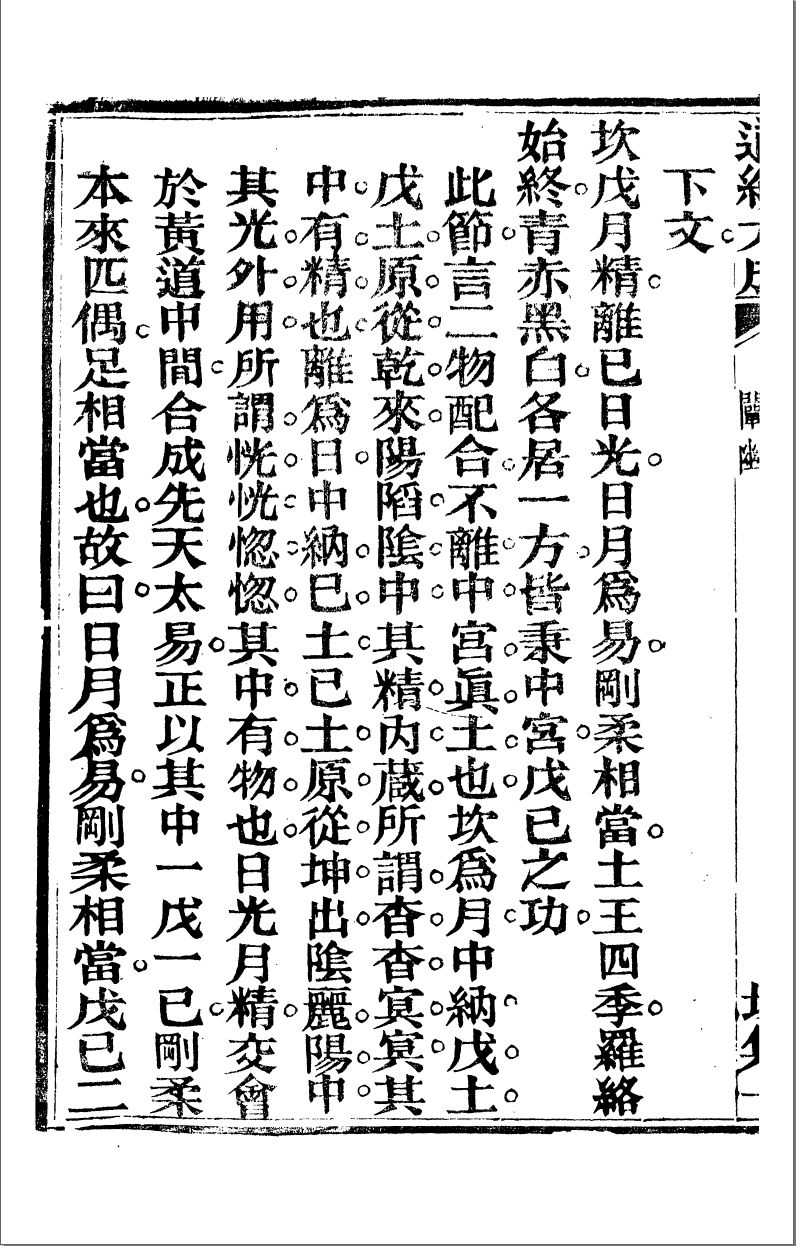 下文
坎戊月精離已日光日月爲易剛柔相當土王四季羅絡
始終青赤黑白各居一方皆秉中宮戊已之功
此節言二物配合不離中宮眞土也坎爲月中納戊土
戊土原從乾來陽陷陰中其精內藏所謂杳杳冥冥其
中有精也離爲日中納巳土已土原從坤出陰麗陽中
其光外用所謂恍恍惚惚其中有物也日光月精交會
於黃道中間合成先天太易正以其中一戊一已剛柔
本來匹偶足相當也故曰日月爲易剛柔相當戊已二